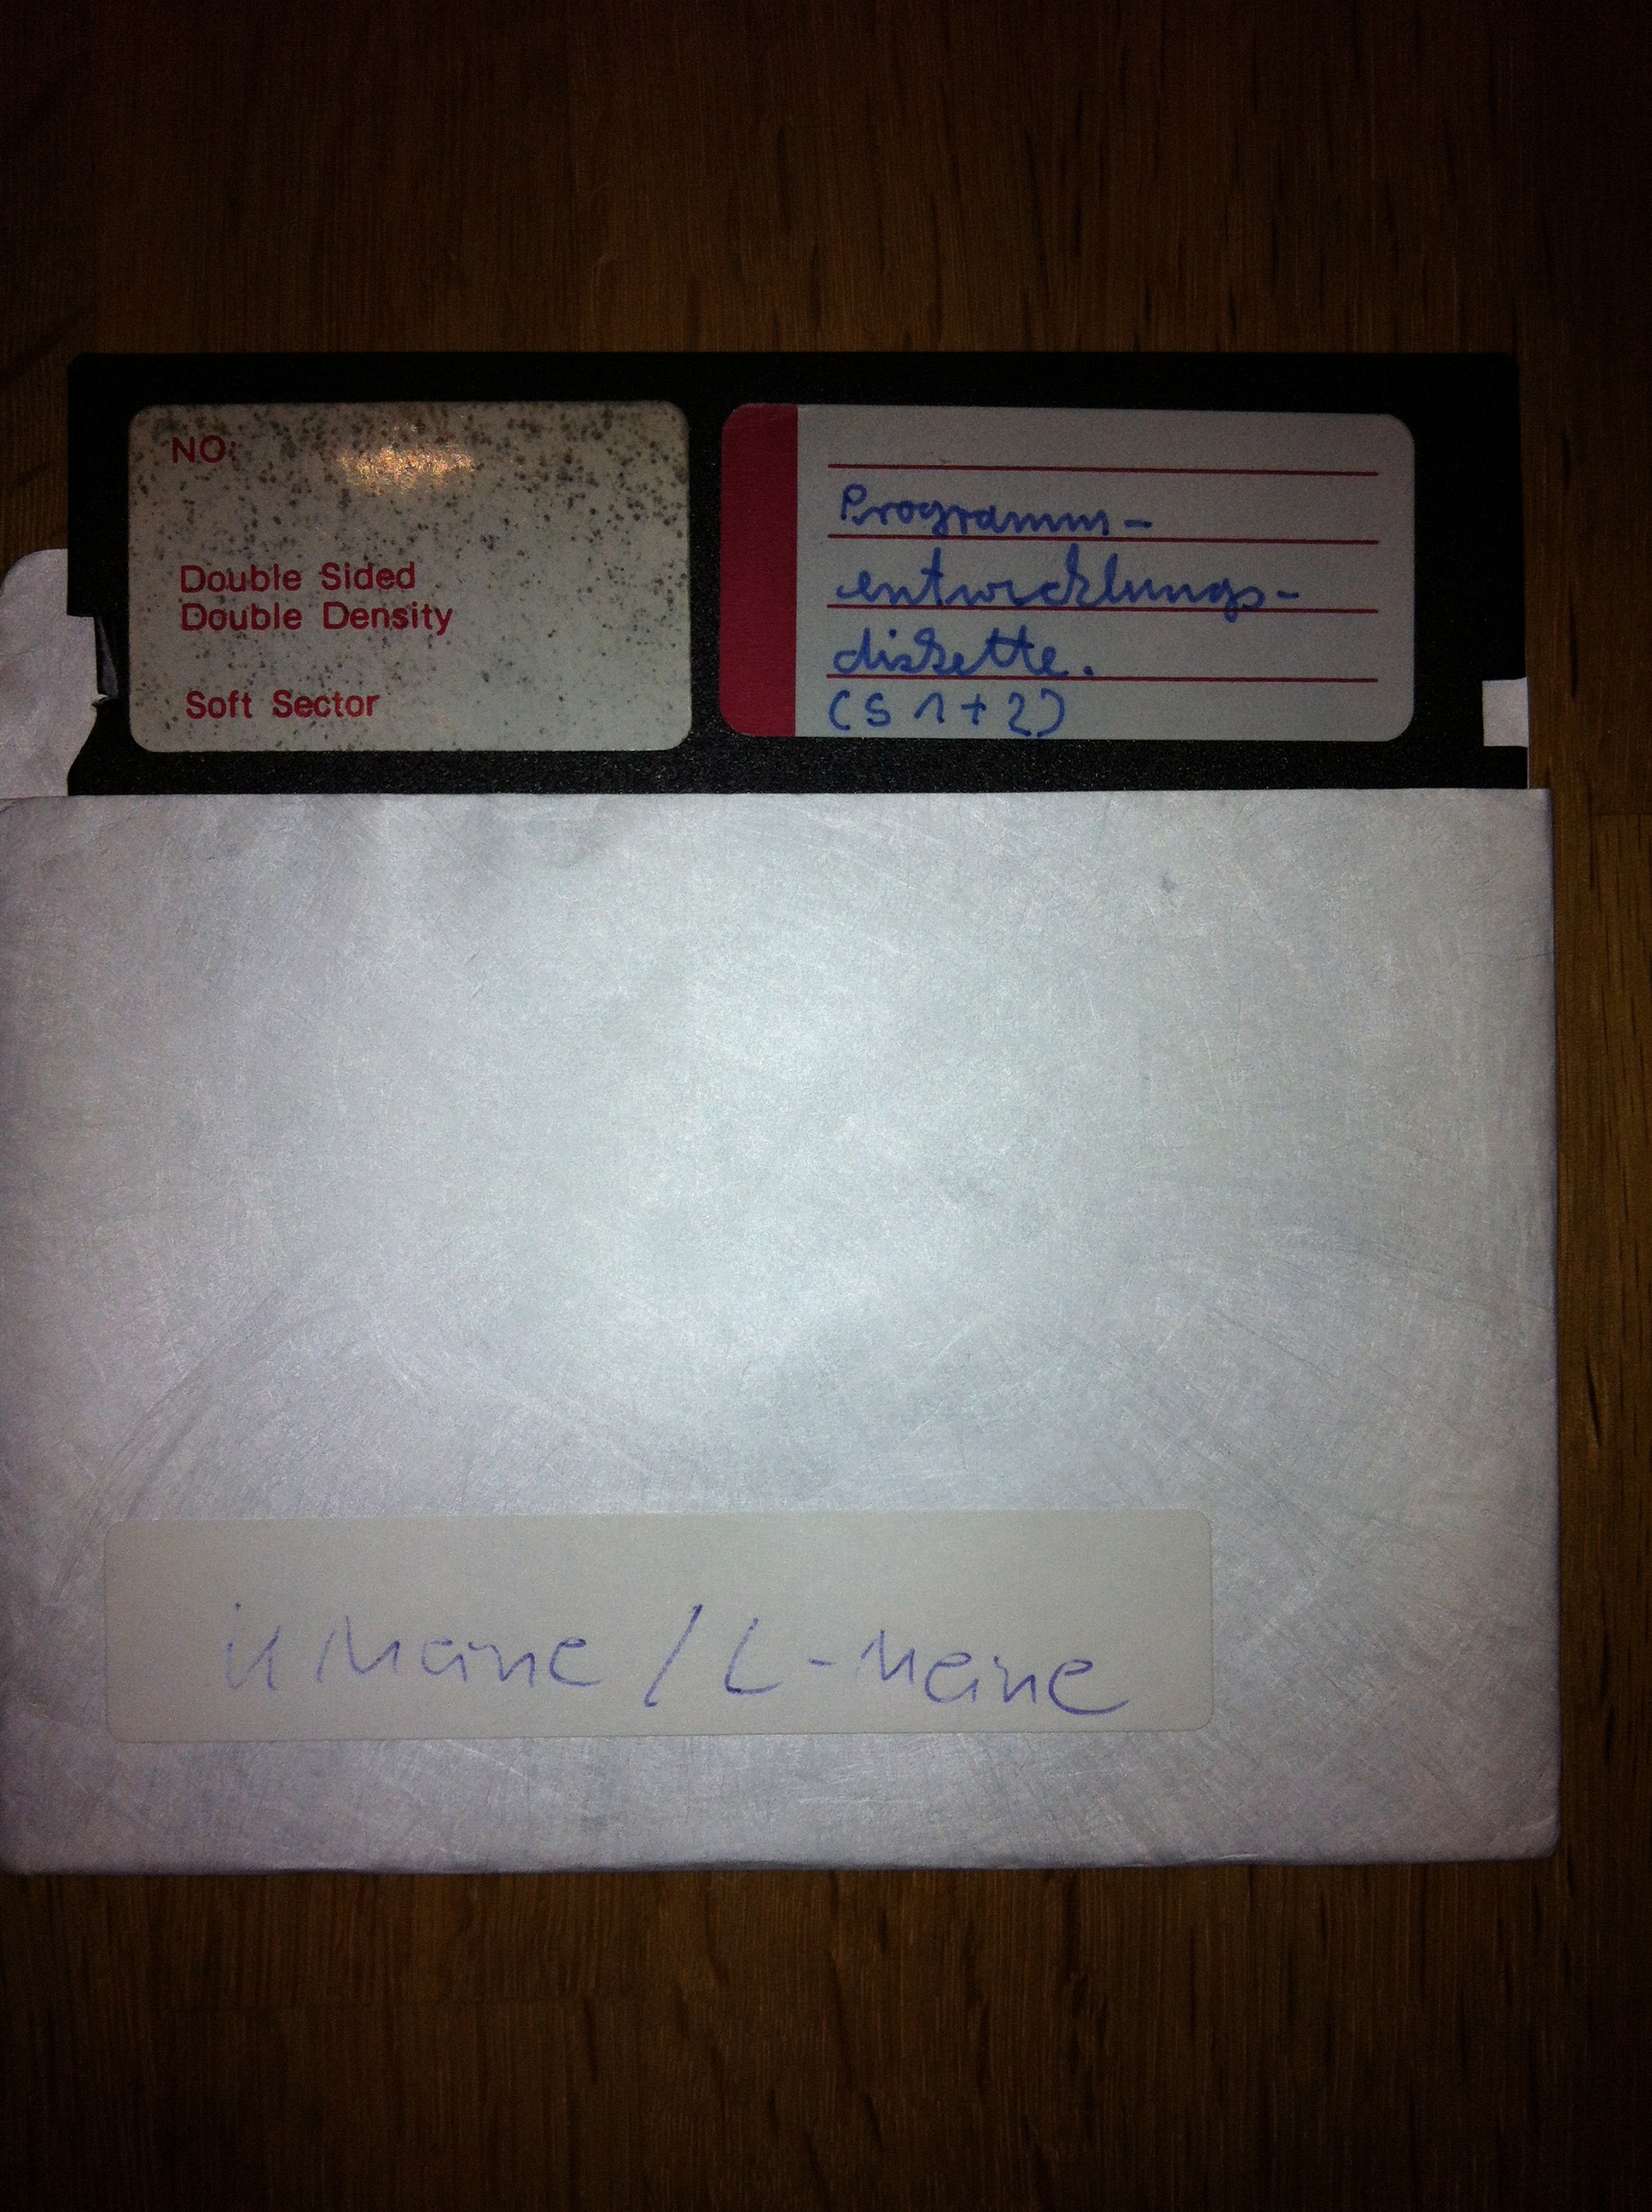 NO:
Double Sided
Double Density
Soft Sector
Programm-
entwicklungs-
diskette.
(S 1+2)
Meine / L-Meine